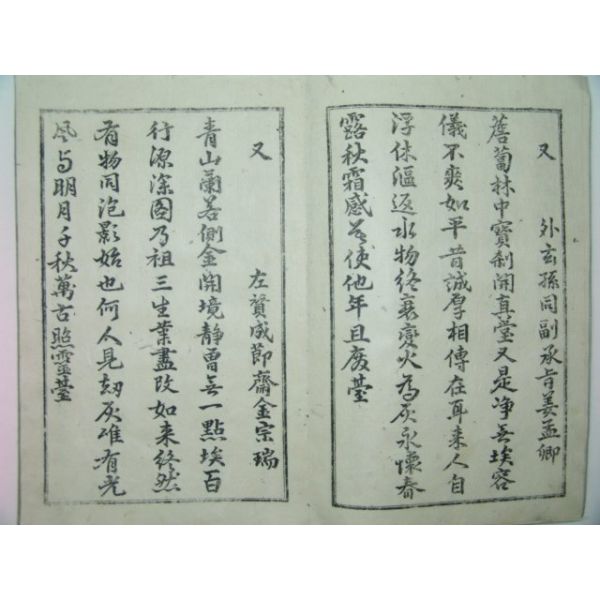 又　外玄孫同副承旨姜孟卿
薝蔔林中寶刹開真堂又是净无埃容
儀不爽如平昔誠厚相傳在耳来人自
浮休漚返水物終衰變火為灰永懷春
露秋霜感莫使他年且废臺
又　左贊成節齋金宗瑞
青山蘭若側金開境静曽无一點埃百
行源深圖乃祖三生業盡改如来終然
有物同泡影始也何人見刼灰唯有光
风与明月千秋萬古照靈臺